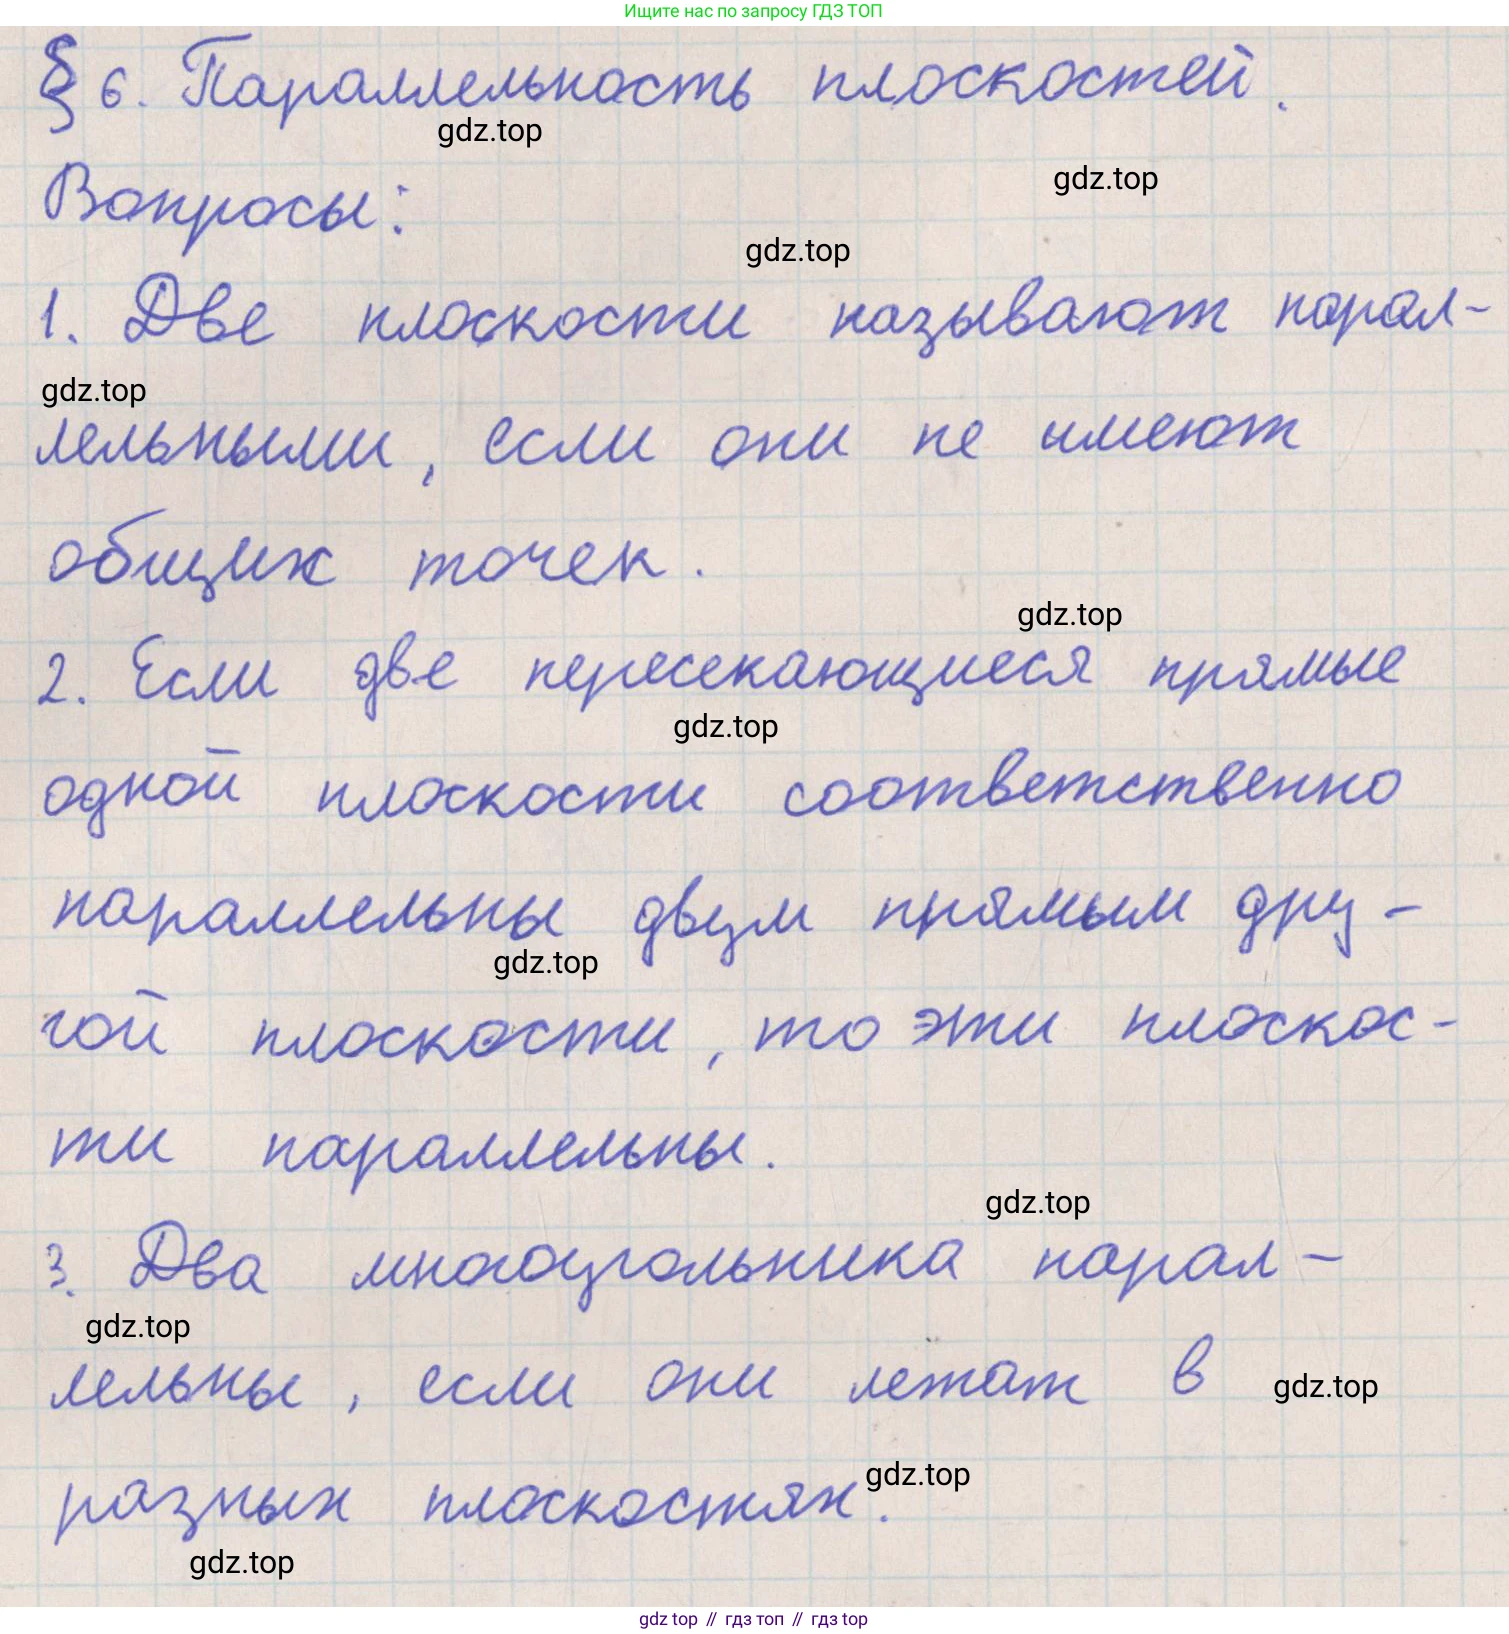 Ищите нас по запросу ГДЗ ТОП
§ 6. Параллельность плоскостей.
gdz.top
gdz.top
Вопросы:
gdz.top
1. Две плоскости называют парал-
gdz.top
лельными, если они не имеют
общих точек.
gdz.top
2. Если две пересекающиеся прямые
gdz.top
одной плоскости соответственно
параллельны двум прямым дру-
gdz.top
гой плоскости, то эти плоскос-
ти параллельны.
gdz.top
3. Два многоугольника парал-
gdz.top
лельны, если они лежат в
gdz.top
gdz.top
разных плоскостях.
gdz.top
gdz top // гдз топ // гдз top